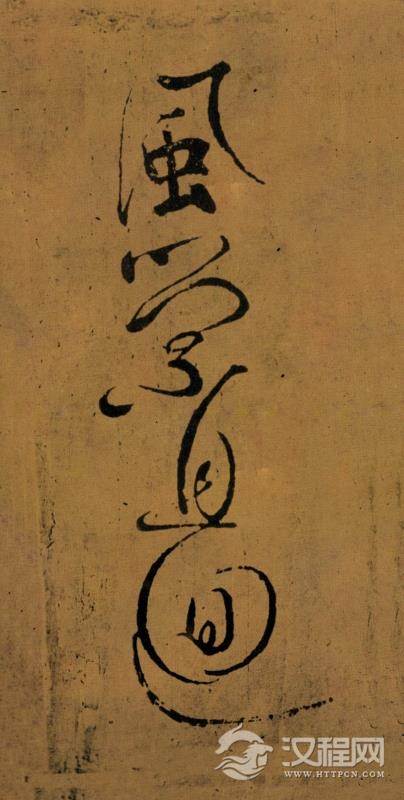 風
直
迴
汉程网
WWW.HTTPCN.COM